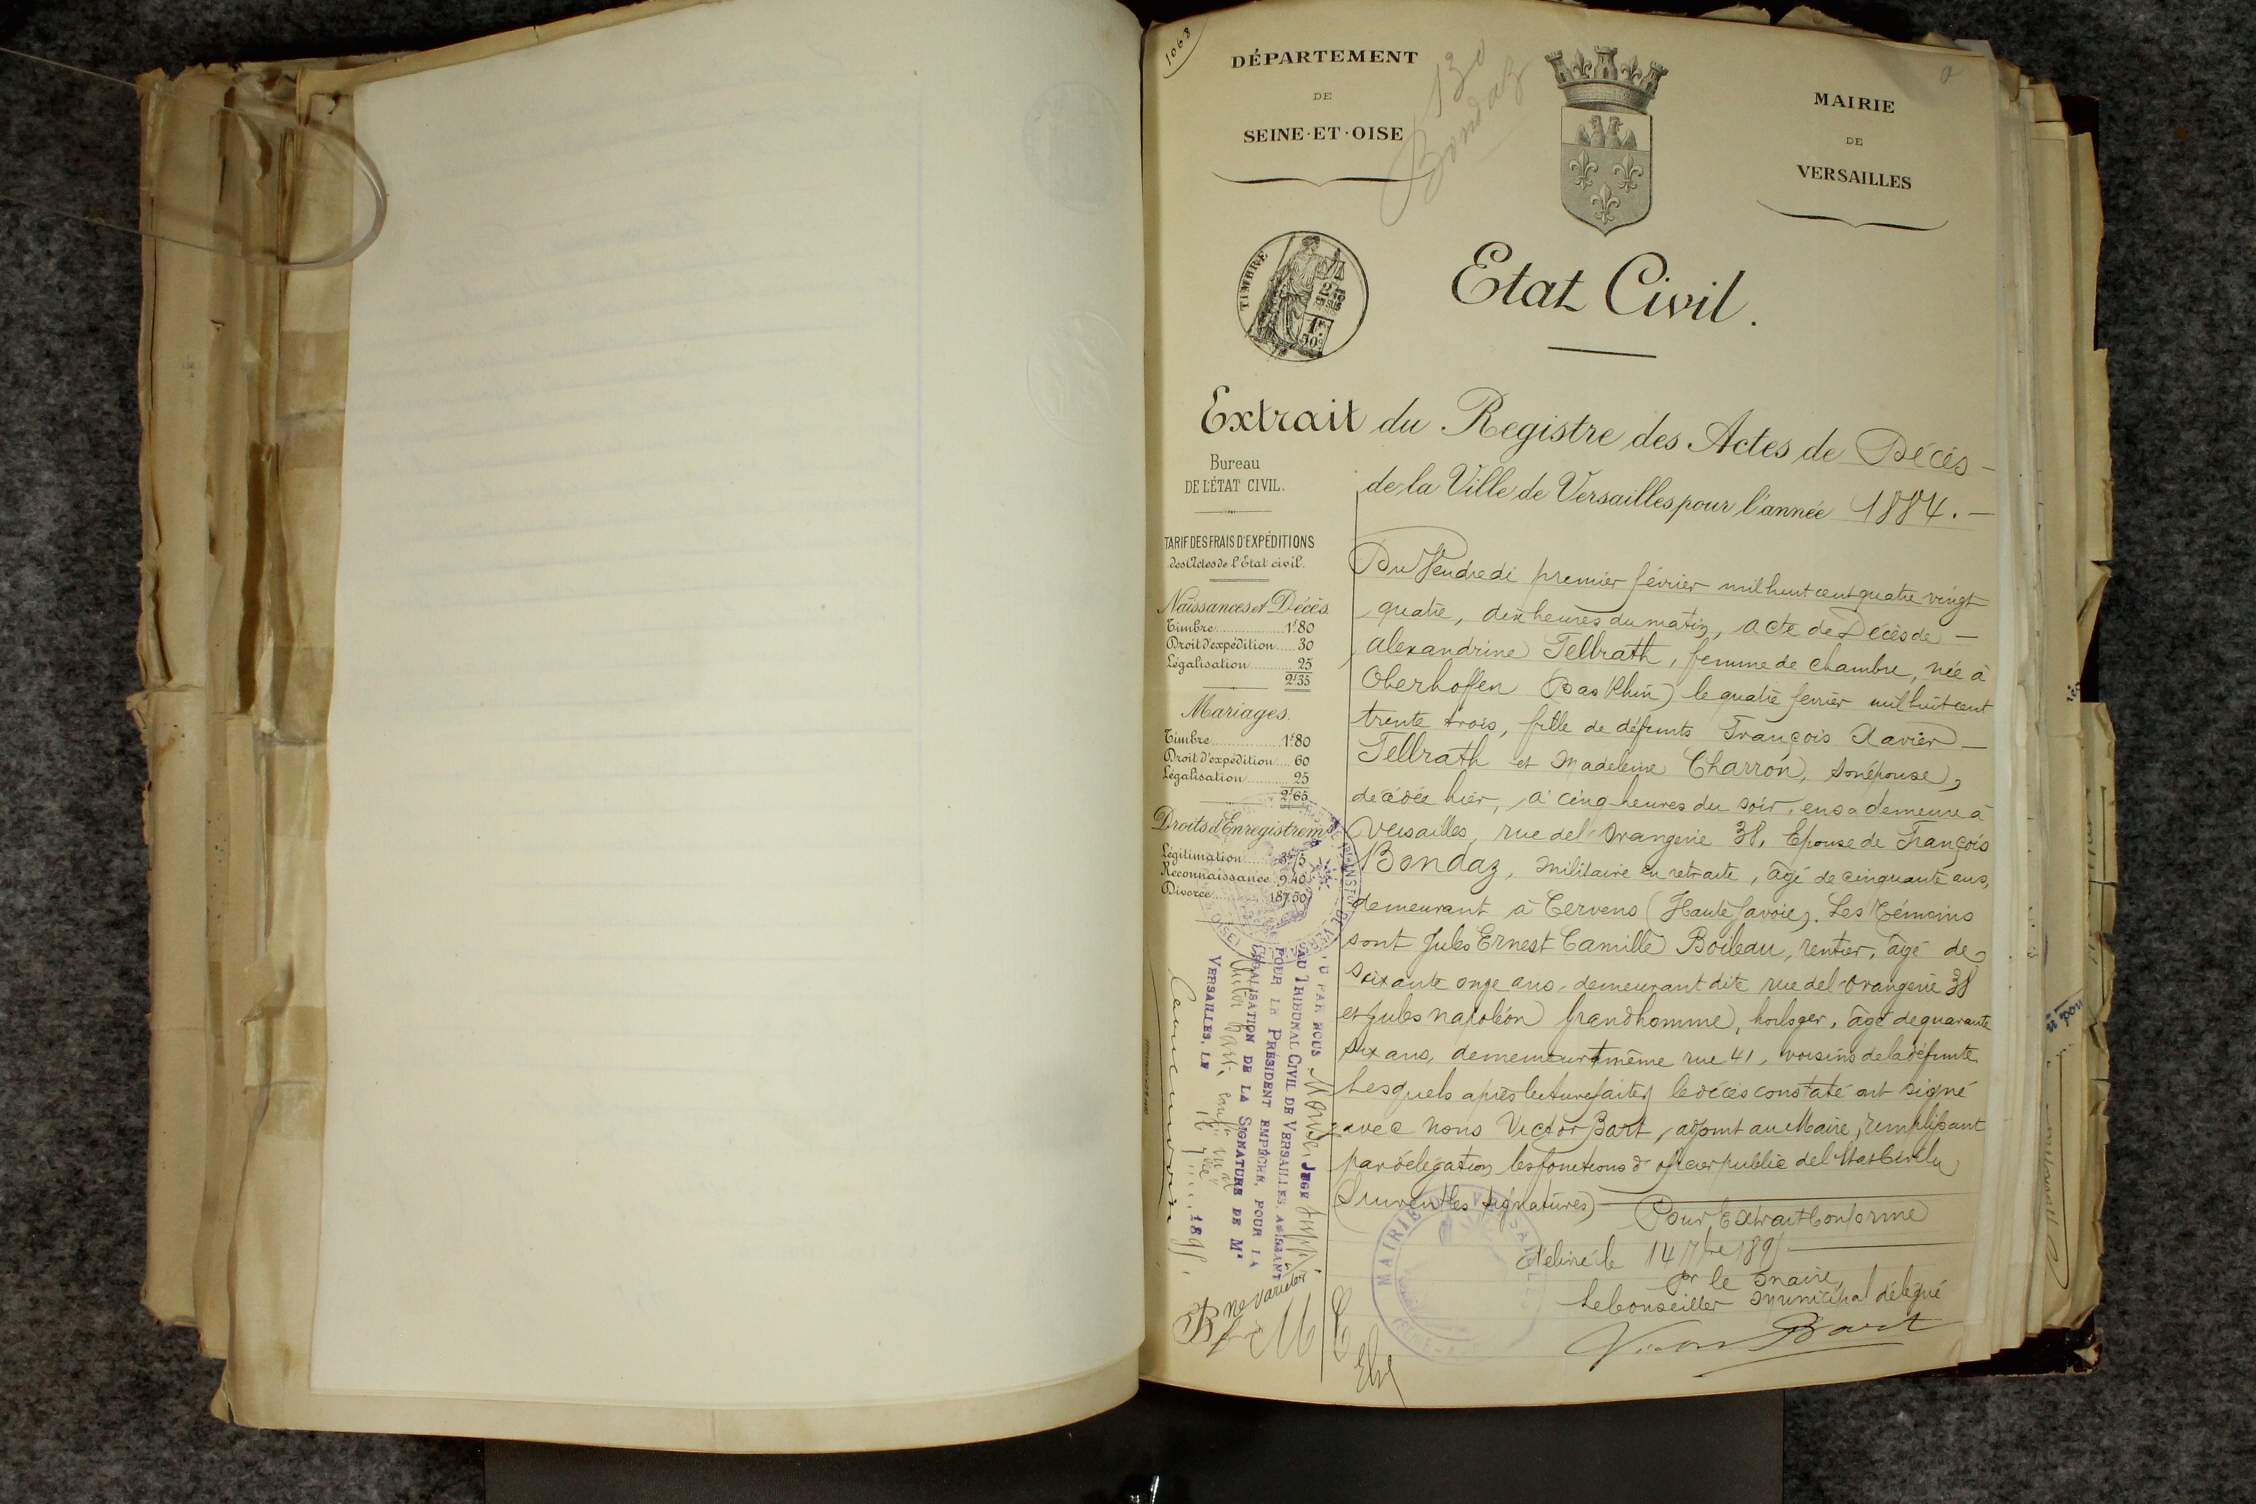 1068
DÉPARTEMENT
DE
SEINE-ET-OISE
130
Bondaz
MAIRIE
DE
VERSAILLES
TIMBRE
Etat Civil.
Extrait du Registre des Actes de Décès
de la Ville de Versailles pour l'année 1884.
Bureau
DE L'ÉTAT CIVIL.
TARIF DES FRAIS D'EXPÉDITIONS
des Actes de l'Etat civil.
Naissances et Décès
Timbre 1f80
Droit d'expédition 30
Légalisation 25
2f35
Mariages.
Timbre 1f80
Droit d'expédition 60
Légalisation 25
2f65
Droits d'Enregistremt
Légitimation
Reconnaissance 9.40
Divorce 187.50
Du Vendredi premier février mil huit cent quatre vingt
quatre, dix heures du matin, acte de Décès de —
Alexandrine Tellrath, femme de chambre, née à
Oberhoffen (Bas Rhin) le quatre fevrier mil huit cent
trente trois, fille de défunts François Xavier —
Tellrath et Madeleine Charron, son épouse,
décédée hier, à cinq heures du soir, en sa demeure à
Versailles, rue de l'Orangerie 38, Epouse de François
Bondaz, militaire en retraite, âgé de cinquante ans,
demeurant à Cervens (Haute Savoie). Les Témoins
sont Jules Ernest Camille Boileau, rentier, âgé de
soixante onze ans, demeurant dite rue de l'Orangerie 38
et Jules Napoléon Grandhomme, horloger, âgé de quarante
six ans, demeurant même rue 41, voisins de la défunte
Lesquels après lecture faite, le décès constaté ont signé
avec Nous Victor Bart, adjoint au Maire, remplissant
par délégation les fonctions d'officier public de l'Etat Civil
(Suivent les signatures) Pour Extrait Conforme
délivré le 14 7bre 1895
pr le Maire,
Le Conseiller municipal délégué
Victor Bart
VU PAR NOUS JUGE
AU TRIBUNAL CIVIL DE VERSAILLES, AGISSANT
POUR LE PRÉSIDENT EMPÊCHÉ, POUR LA
LÉGALISATION DE LA SIGNATURE DE Mr
Victor Bart,
VERSAILLES, LE 16 1895.
MAIRIE DE VERSAILLES
ne varietur